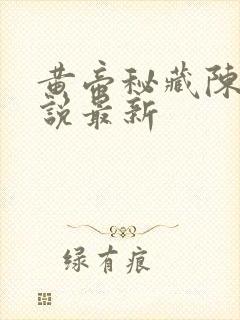 黄帝秘藏陈
說最新
绿有痕